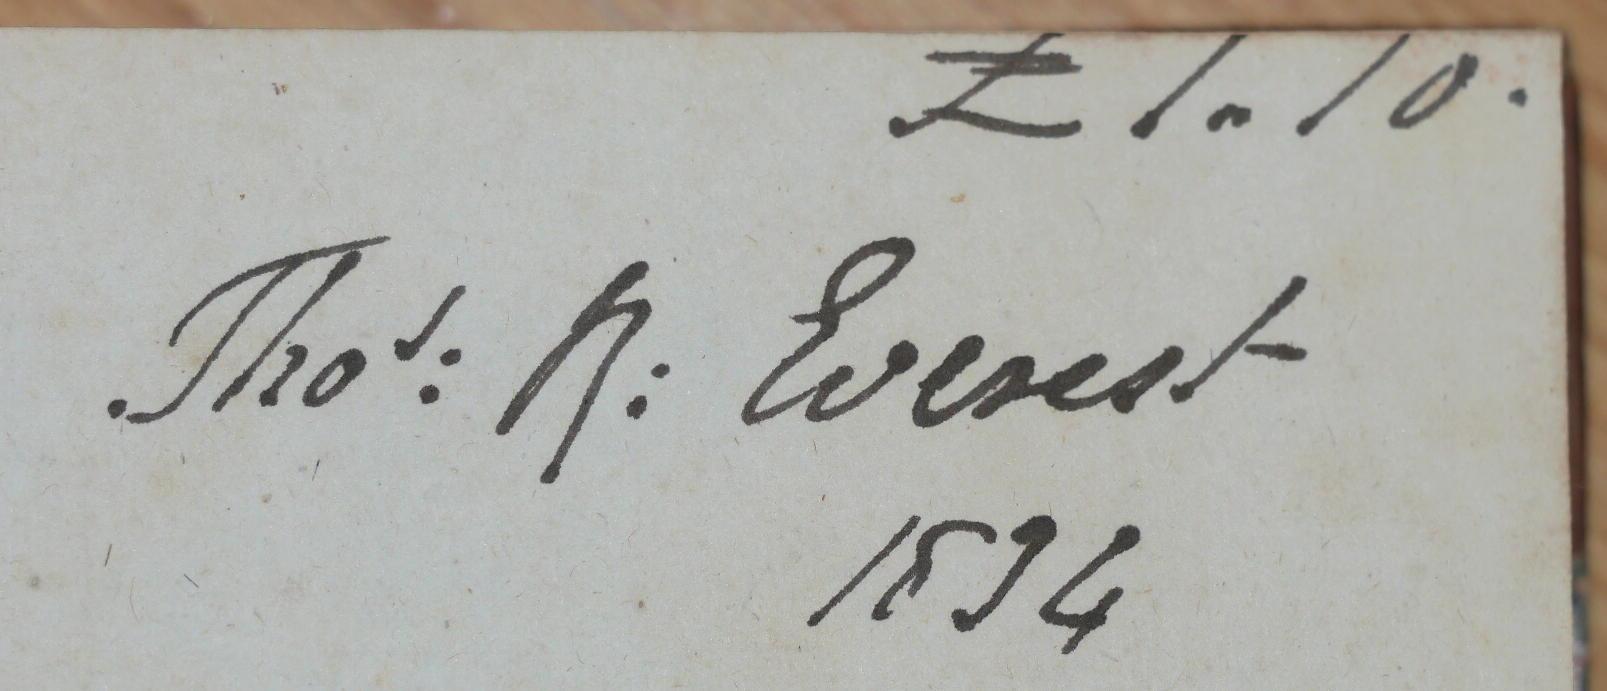 £ 1. 10.
Thos: R: Everest
1834